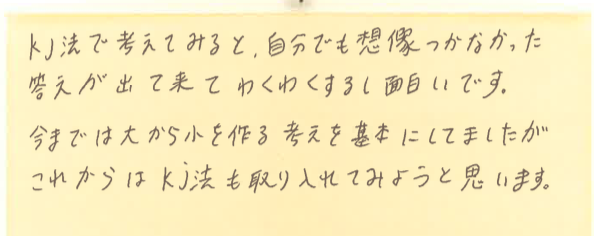 kj法で考えてみると、自分でも想像つかなかった
答えが出て来てわくわくするし面白いです。
今までは大から小を作る考えを基本にしてましたが
これからはkj法も取り入れてみようと思います。